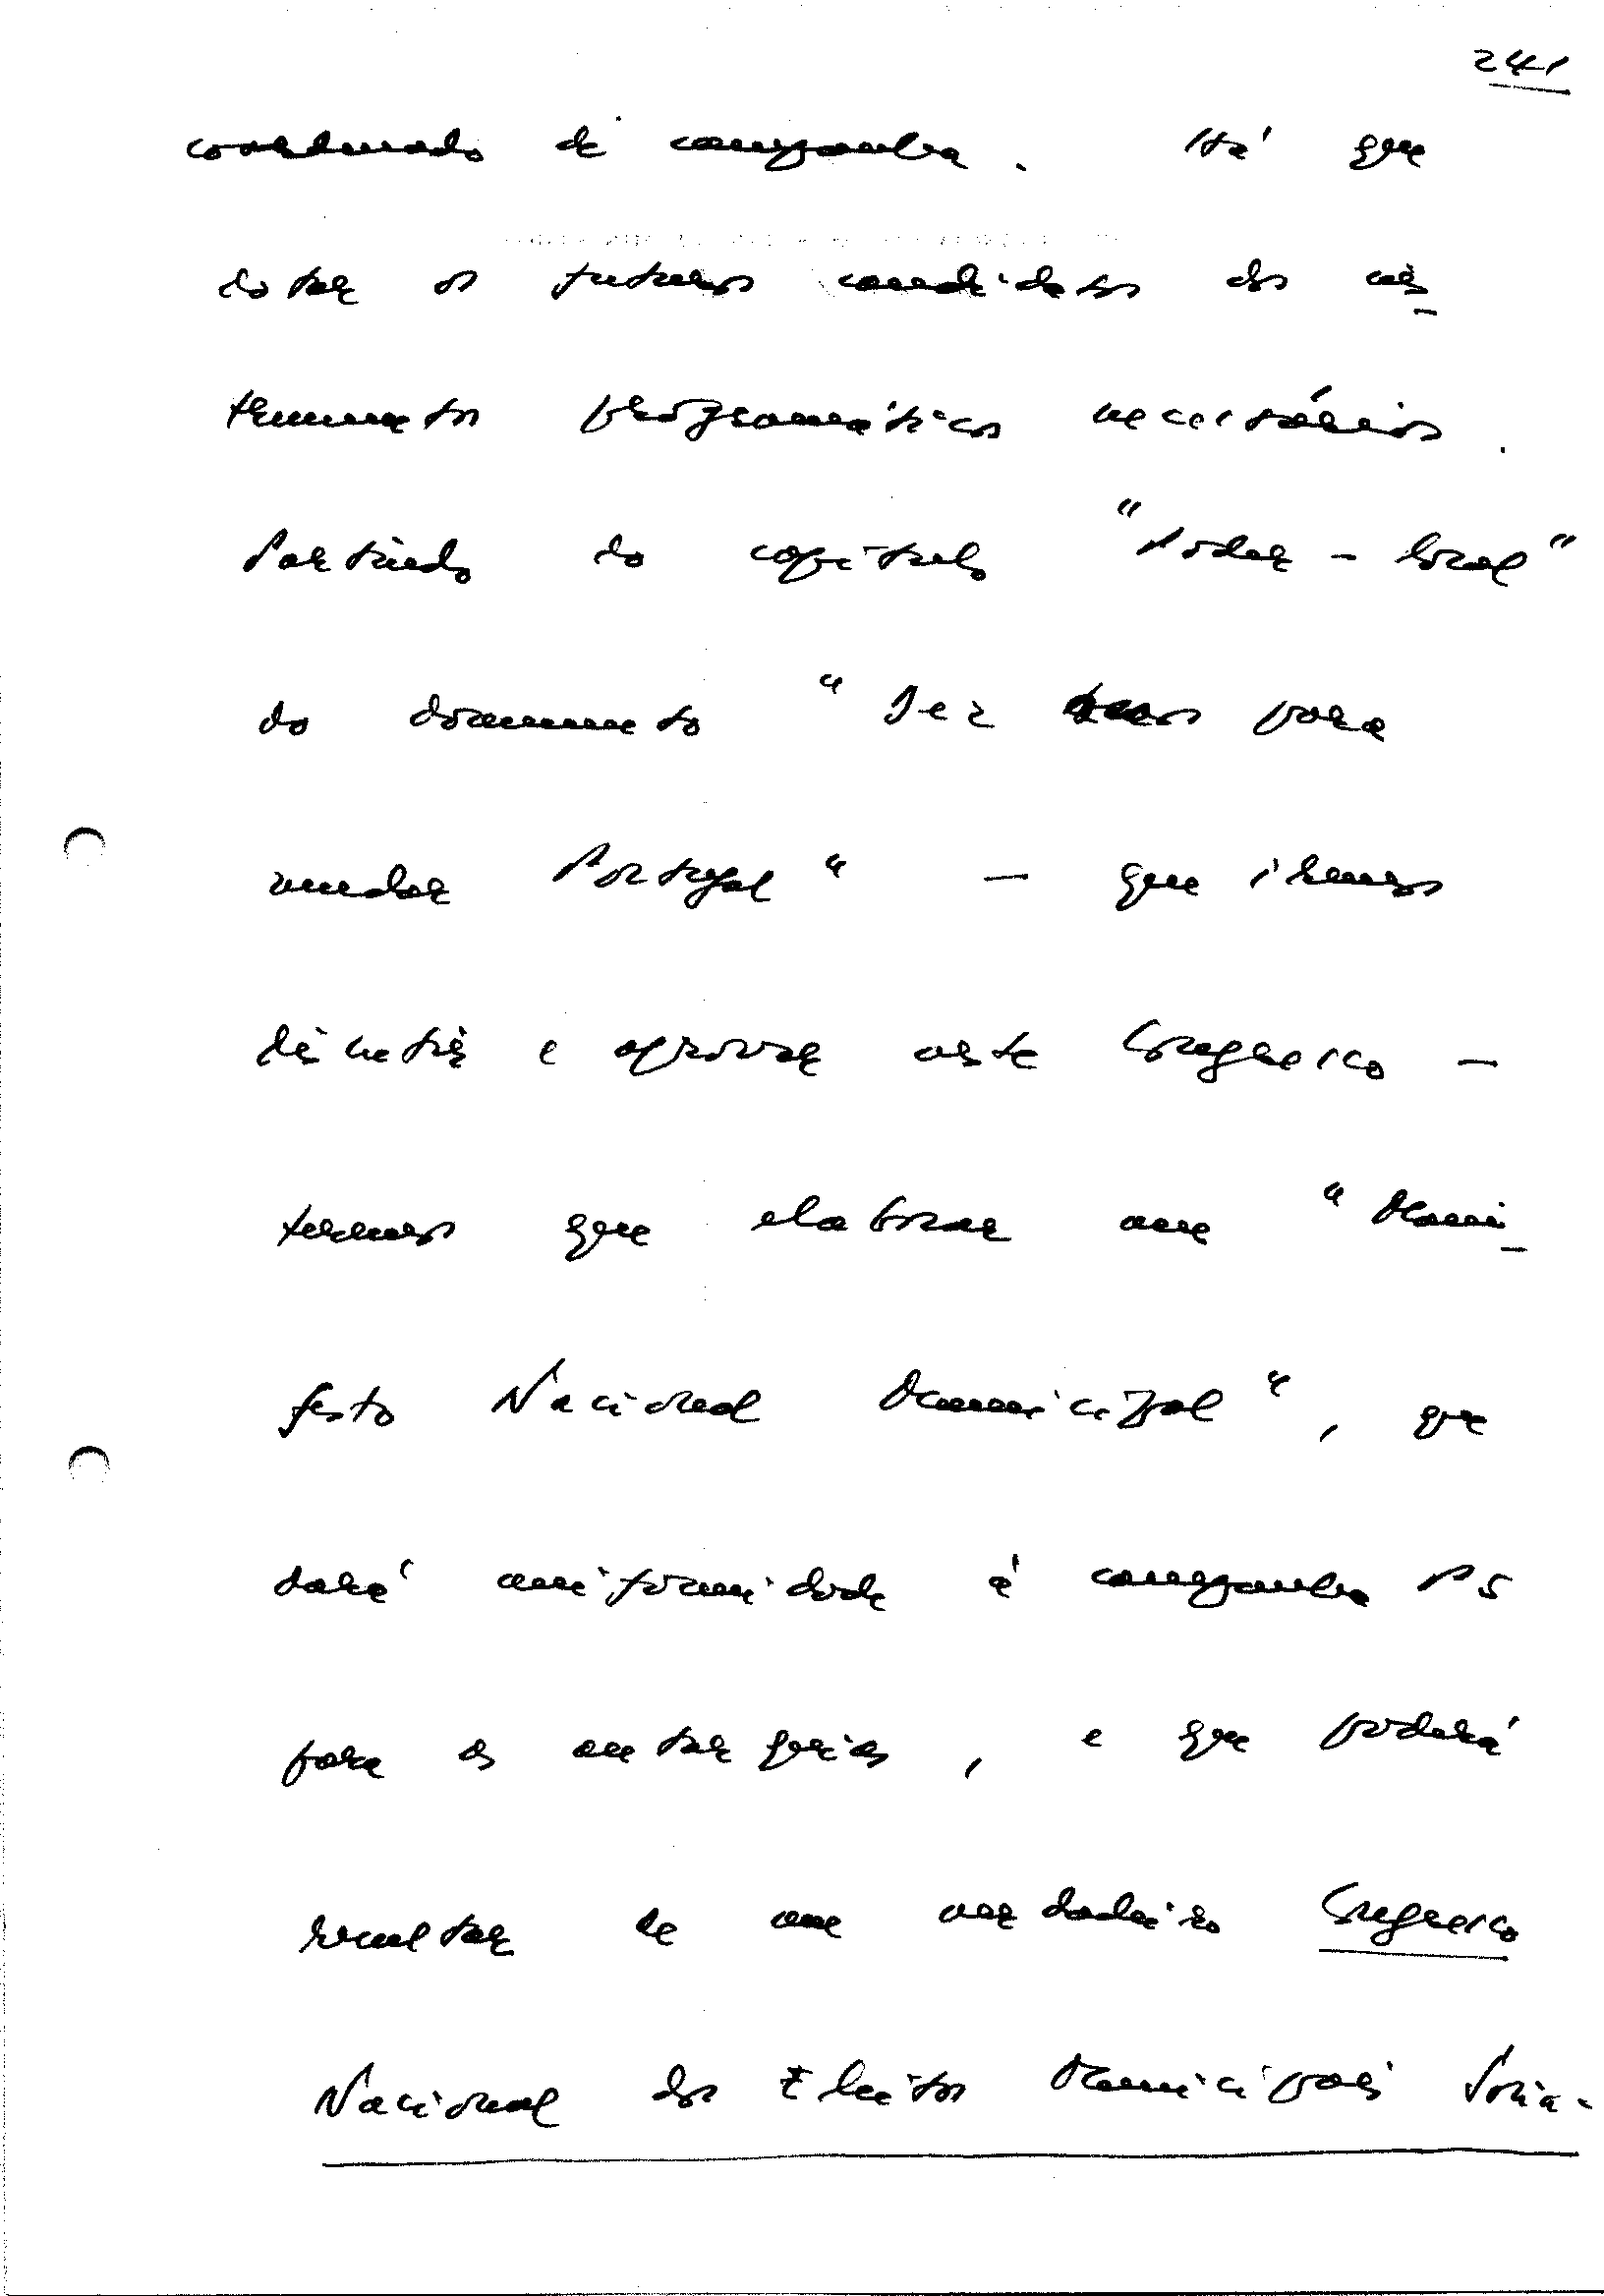 241
coordenado de campanha. Há que
dotar os futuros candidatos dos ins
trumentos programáticos necessários.
Partindo do capítulo "Poder-Local"
do documento "Dez anos para
mudar Portugal" — que iremos
discutir e aprovar neste Congresso —
teremos que elaborar um "Mani
festo Nacional Municipal", que
dará uniformidade à campanha PS
para as autarquias, e que poderá
resultar de um verdadeiro Congresso
Nacional dos Eleitos Municipais Socia-